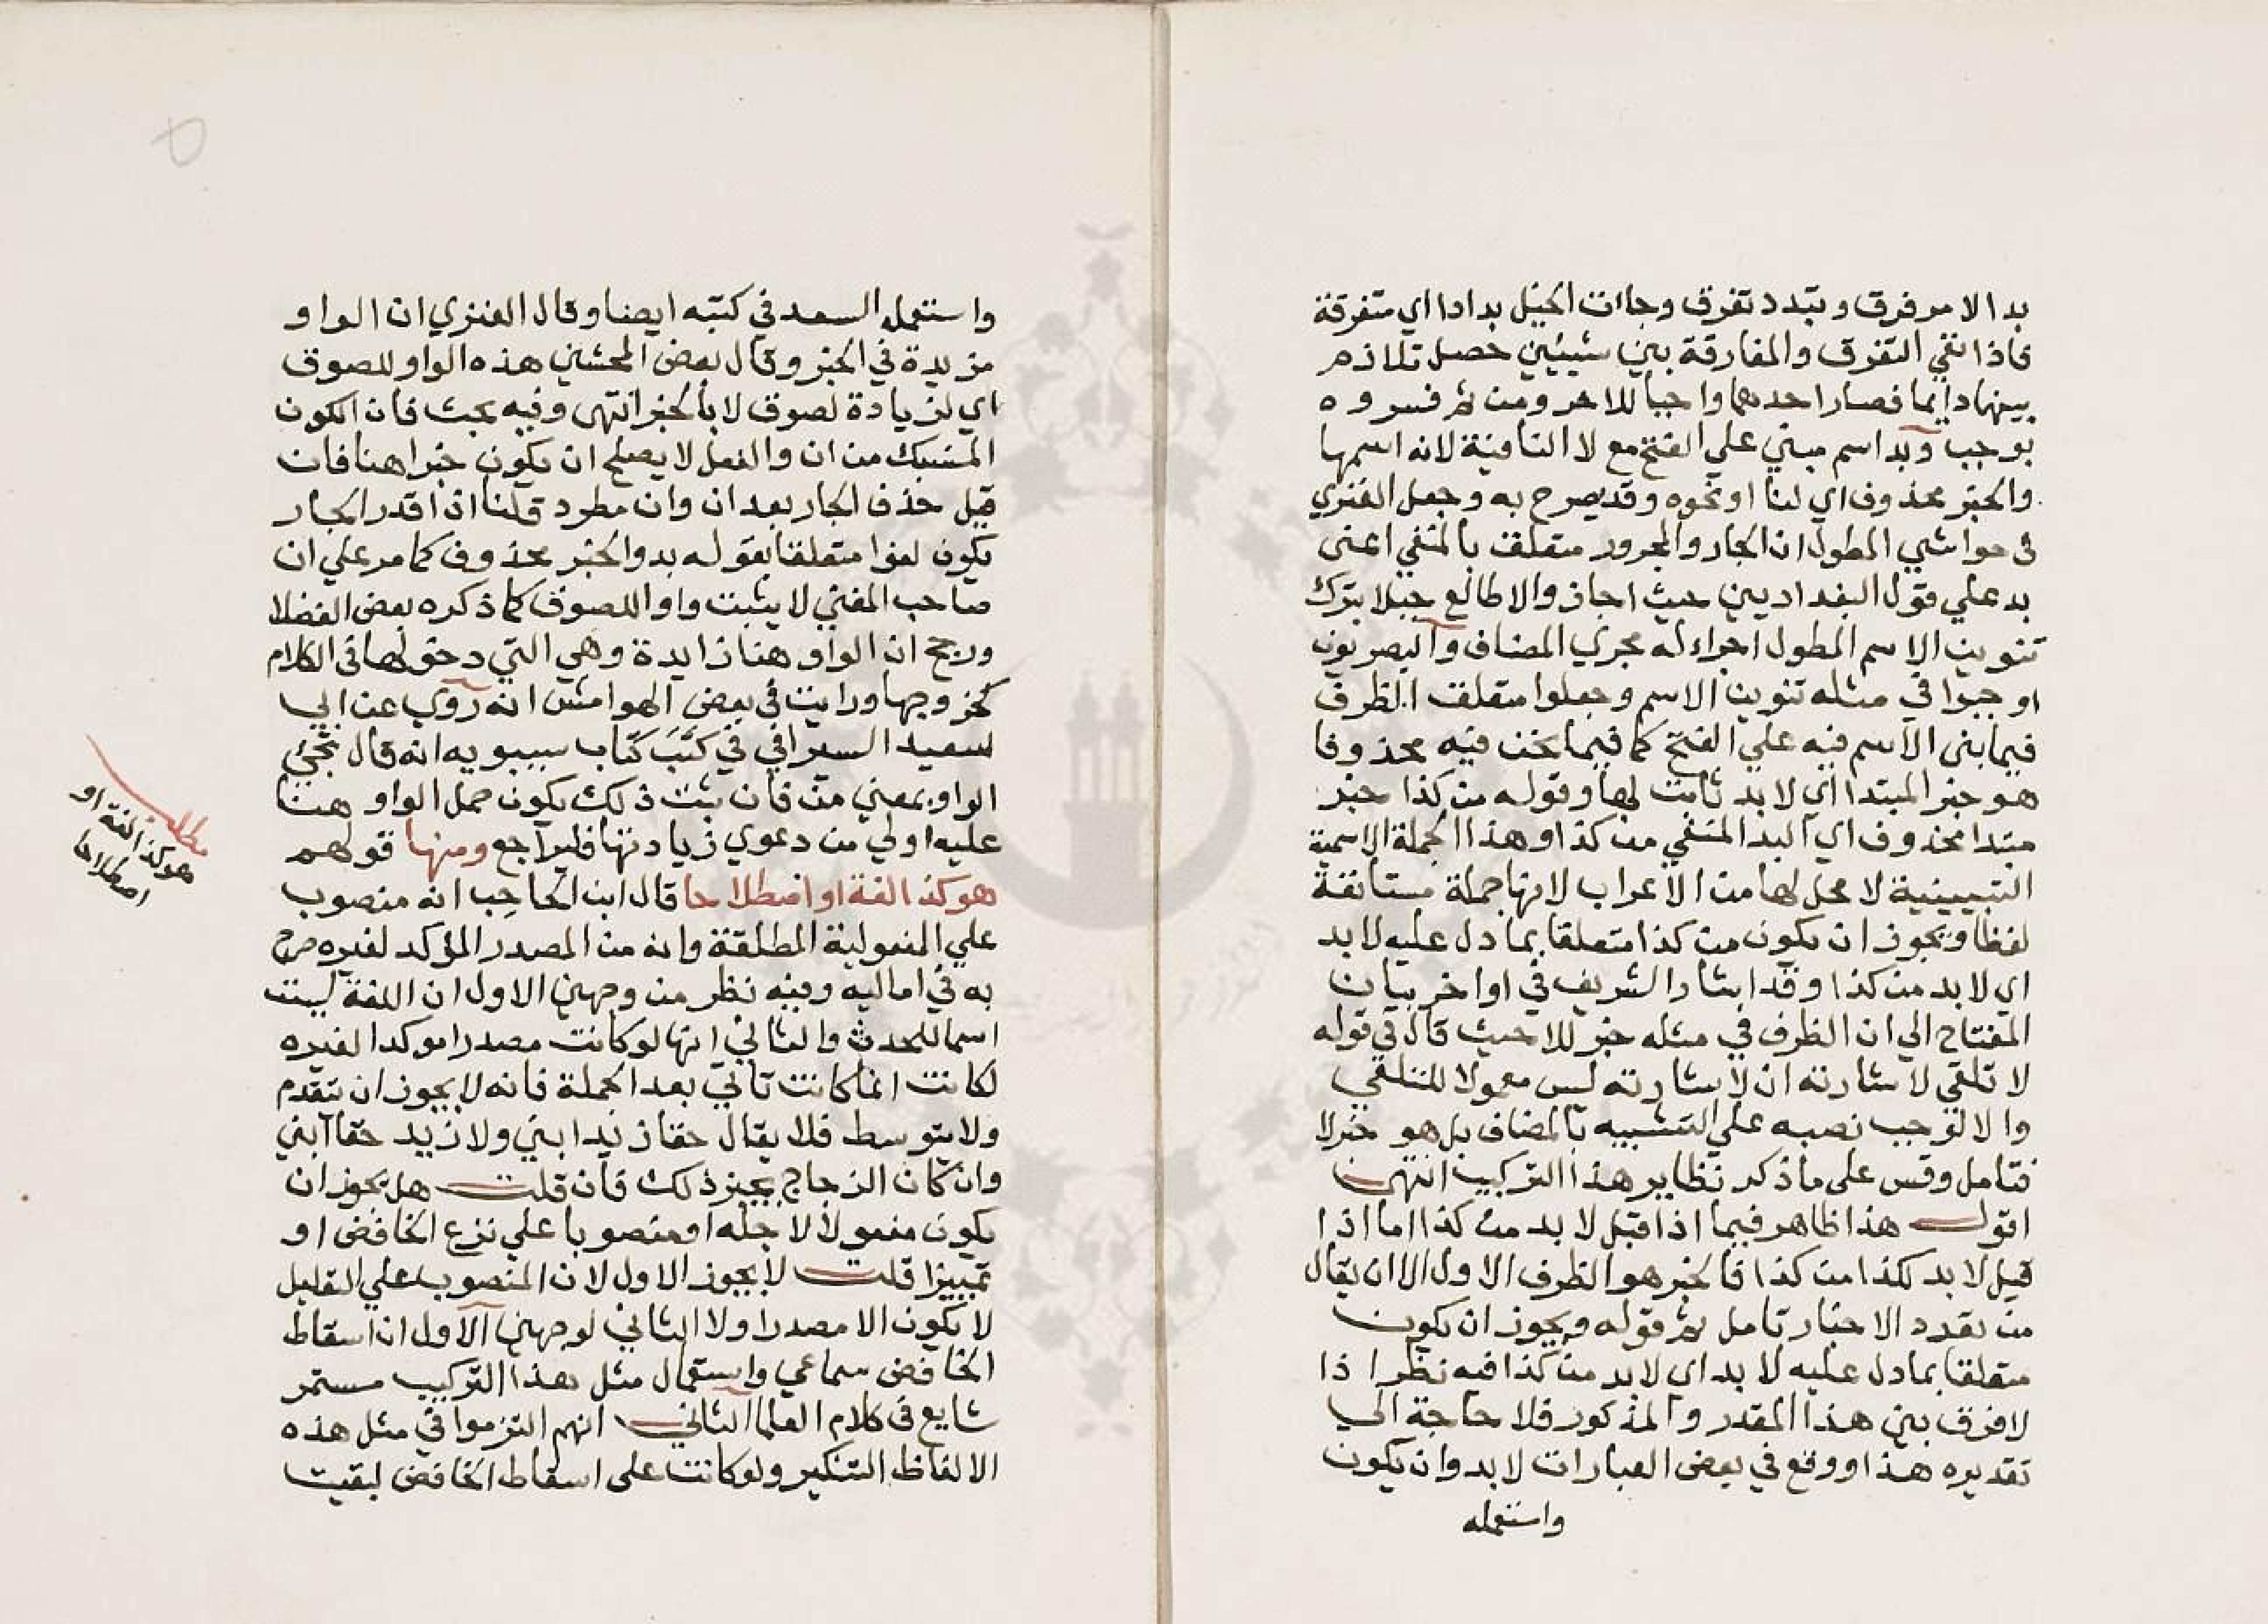 بد الامر فرق وتبدد تفرق وجاات الخيل بدادا اي متفرقة
فاذا نفي التفرق والمفارقة بين شيئين حصل تلازم
بينهما دايما فصار احدهما واجبا للاخر ومن ثم فسروه
بوجب وبد اسم مبني علي الفتح مع لا النافية لانه اسمها
والخبر محذوف اي لنا او نحوه وقد يصرح به وجعل الفنري
في حواشي المطول ان الجار والمجرور متعلق بالمنفي اعني
بد علي قول البغداديين حيث اجازوا لا طالع جبلا بترك
تنوين الاسم المطول اجراء له مجري المضاف والبصريون
اوجبوا في مثله تنوين الاسم وجعلوا متعلق الظرف
فيما بني الاسم فيه علي الفتح كما فيما نحن فيه محذوفا
هو خبر المبتدا اي لا بد ثابت لها وقوله من كذا خبر
مبتدا محذوف اي البد المنفي من كذا وهذا الجملة الاسمية
التبيينية لا محل لها من الاعراب لانها جملة مستانفة
لفظا ويجوز ان يكون من كذا متعلقا بما دل عليه لا بد
اي لا بد من كذا وقد اشار الشريف في اواخر بيان
المفتاح الي ان الظرف في مثله خبر للا حيث قال في قوله
لا تلقي لاشارته ان لاشارته ليس معمولا للتلقي
والا لوجب نصبه علي التشبيه بالمضاف بل هو خبر لا
فتامل وقس على ما ذكر نظاير هذا التركيب انتهى
اقول هذا ظاهر فيما اذا قيل لا بد من كذا اما اذا
قيل لا بد لكذا من كذا فالخبر هو الظرف الاول الا ان يقال
من تعدد الاخبار تامل ثم قوله ويجوز ان يكون
متعلقا بما دل عليه لا بد اي لا بد من كذا فيه نظر اذ
لا فرق بين هذا المقدر والمذكور فلا حاجة الي
تقديره هذا ووقع في بعض العبارات لا بد وان يكون
واستعمله
واستعمله السعد في كتبه ايضا وقال الفنري ان الواو
مزيدة في الخبر وقال بعض المحشين هذه الواو للصوق
اي لزيادة لصوق لا بالخبر انتهى وفيه بحث فان الكون
المنسبك من ان والفعل لا يصلح ان يكون خبرا هنا فان
قيل حذف الجار بعد ان وان مطرد قلنا اذا قدر الجار
يكون لغوا متعلقا بقوله بد والخبر محذوف كما مر علي ان
صاحب المغني لا يثبت واو اللصوق كما ذكره بعض الفضلا
ورجح ان الواو هنا زايدة وهي التي دخولها في الكلام
كخروجها ورايت في بعض الهوامش انه روي عن ابي
سعيد السيرافي في كتب كتاب سيبويه انه قال تجئ
الواو بمعني من فان ثبت ذلك يكون حمل الواو هنا
عليه اولي من دعوي زيادتها فليراجع ومنها قولهم
هو كذا لغة او اصطلاحا قال ابن الحاجب انه منصوب
علي المفعولية المطلقة وانه من المصدر المؤكد لغيره صرح
به في اماليه وفيه نظر من وجهين الاول ان اللغة ليست
اسما للحدث والثاني انها لو كانت مصدرا موكدا لغيره
لكانت انما كانت تاتي بعد الجملة فانه لا يجوز ان تتقدم
ولا يتوسط فلا يقال حقا زيد ابني ولا زيد حقا ابني
وان كان الزجاج يجيز ذلك فان قلت هل يجوز ان
يكون مفعولا لاجله او منصوبا علي نزع الخافض او
تمييزا قلت لا يجوز الاول لان المنصوب علي التعليل
لا يكون الا مصدرا ولا الثاني لوجهين الاول ان اسقاط
الخافض سماعي واستعمال مثل هذا التركيب مستمر
شايع في كلام العلما الثاني انهم التزموا في مثل هذه
الالفاظ التنكير ولو كانت على اسقاط الخافض لبقيت
مطلب
هو كذا لغة او
اصطلاحا